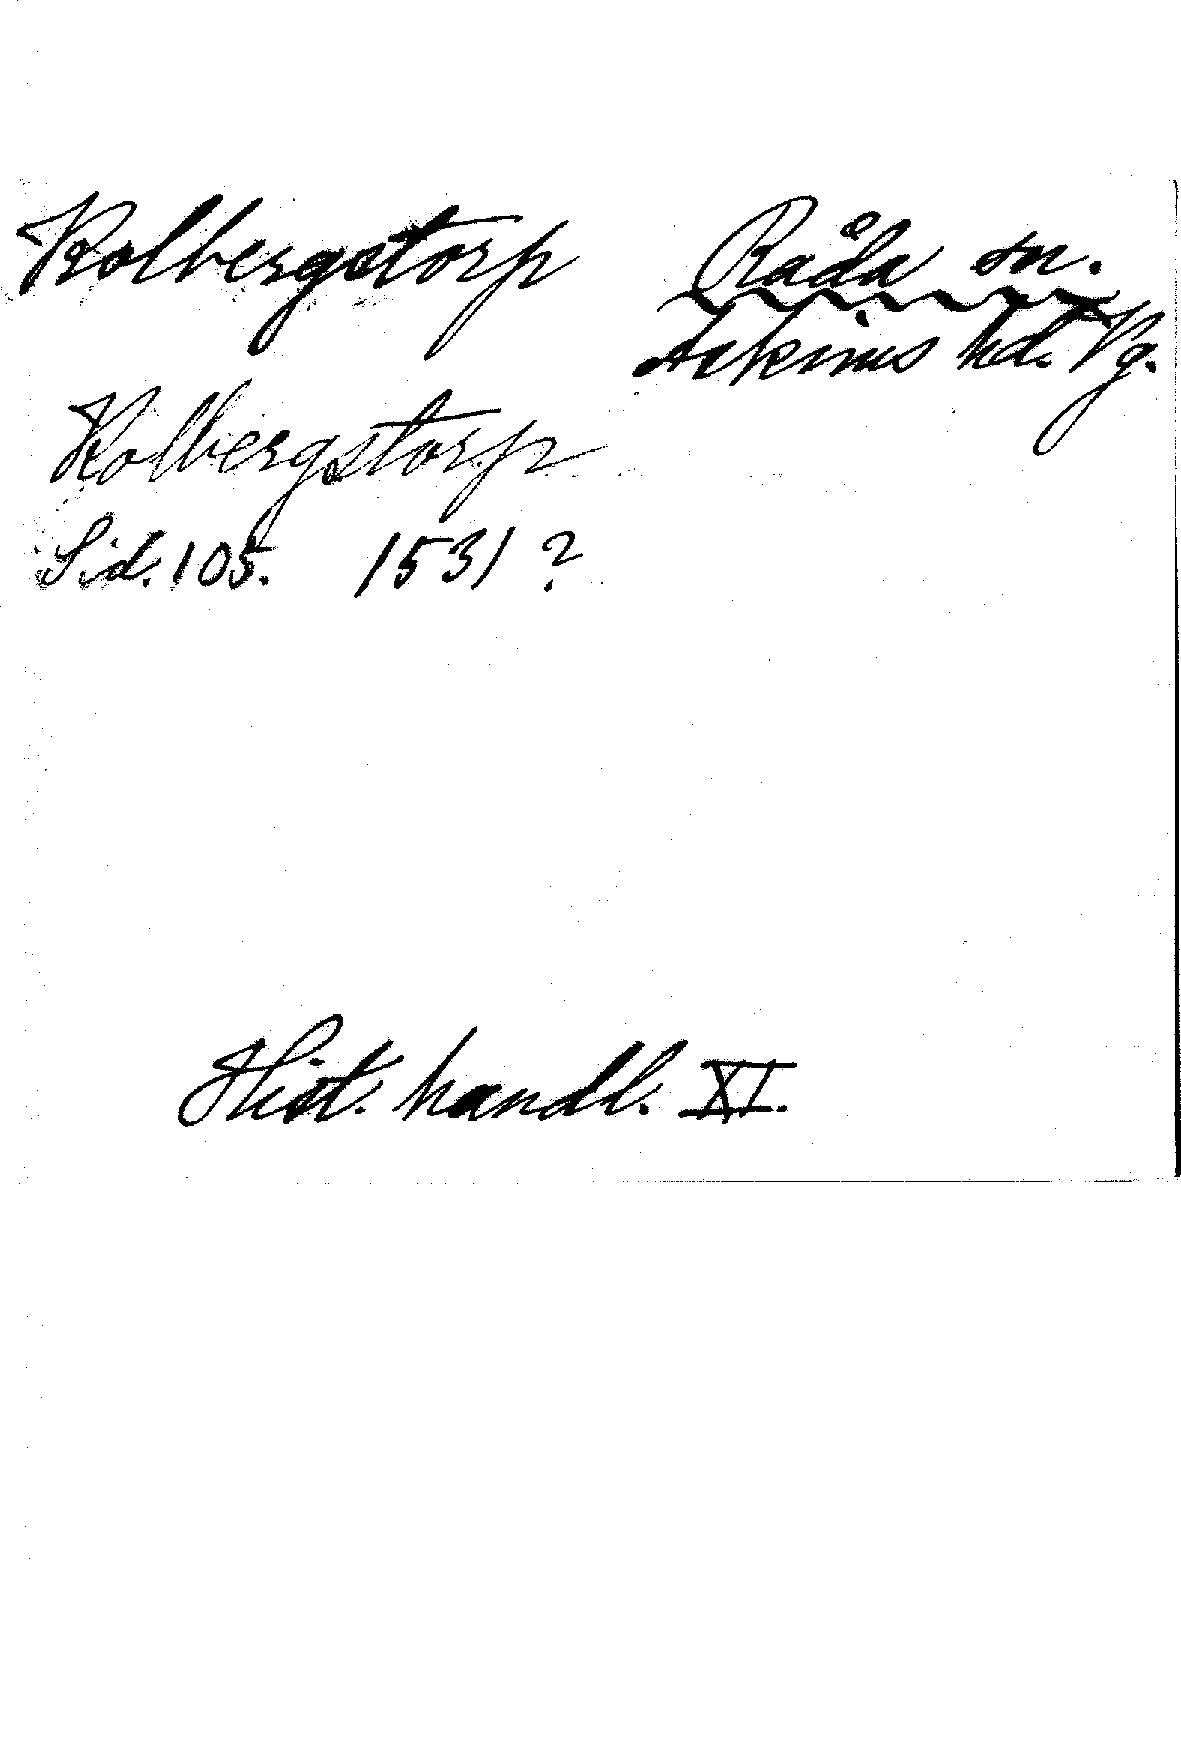 Kolbergstorp Råda sn.
Askims hd. Vg.
Kolbergstorp
Sid. 105. 1531?
Hist. handl. XI.